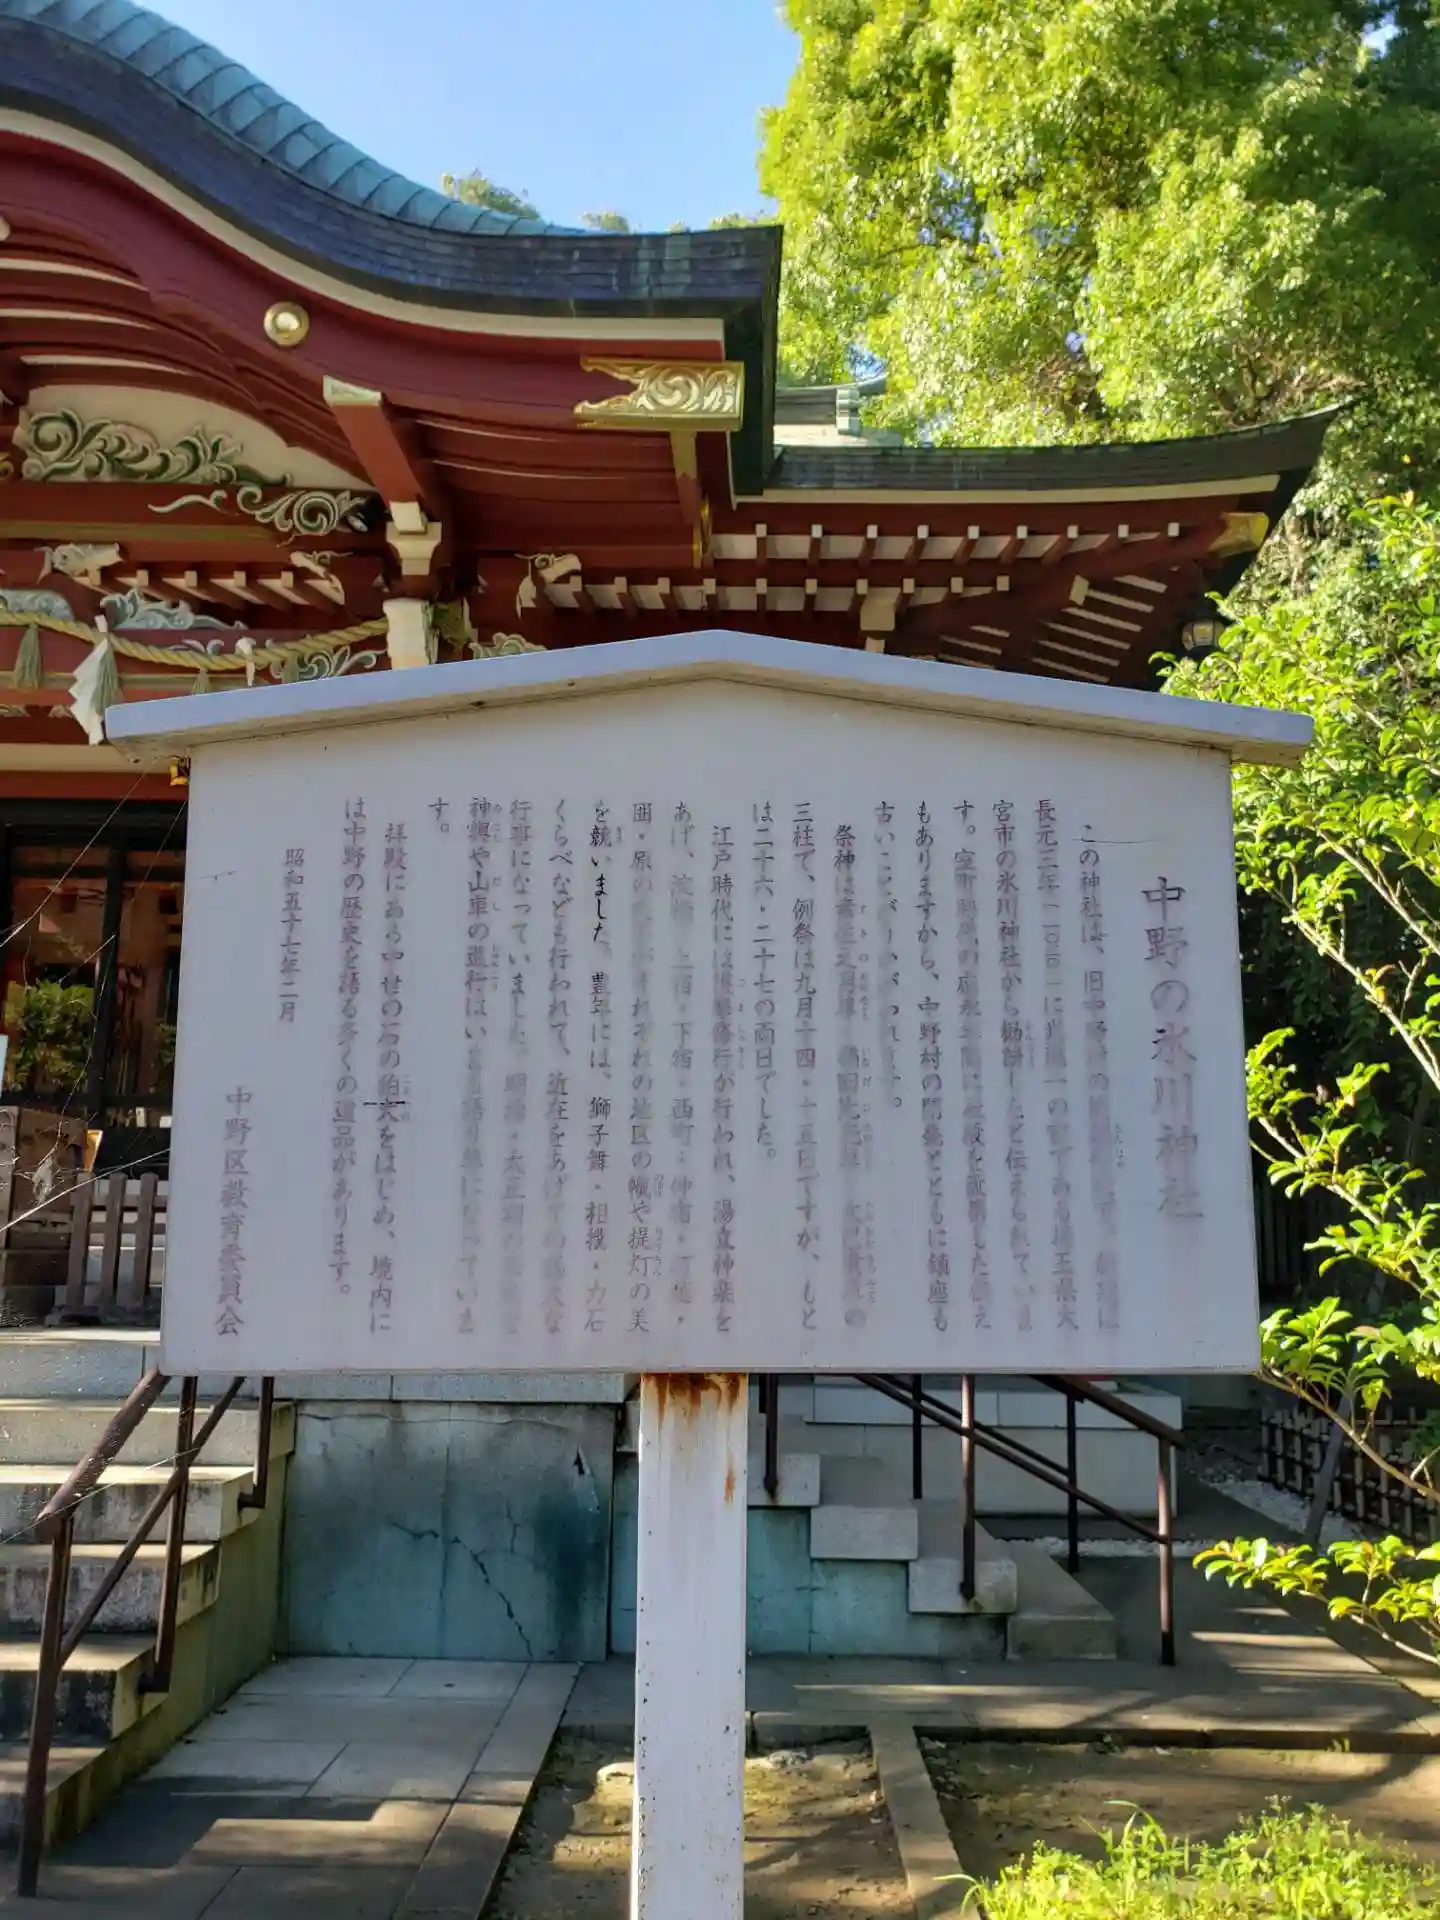 中野の氷川神社
この神社は、旧中野村の総鎮守で、創建は
長元三年(一〇三〇)に武蔵一の宮である埼玉県大
宮市の氷川神社から勧請したと伝えられていま
す。室町時代の応永年間に社殿を改築した伝え
もありますから、中野村の開発とともに鎮座も
古いことがうかがわれます。
祭神は須佐之男尊・稲田比売尊・大己貴尊の
三柱で、例祭は九月十四・十五日ですが、もと
は二十六・二十七の両日でした。
江戸時代には行が行われ、湯立神楽を
あげ、淀橋・上宿・下宿・西町・仲宿・
囲・原のがそれぞれの地区の幟や提灯の美
を競いました。豊年には、獅子舞・相撲・力石
くらべなども行われて、近在をあげての盛大な
行事になっていました。明治・大正期の
神輿や山車の巡行はいまも語り草になっていま
す。
拝殿にある中世の石の狛犬をはじめ、境内に
は中野の歴史を語る多くの遺品があります。
昭和五十七年二月
中野区教育委員会